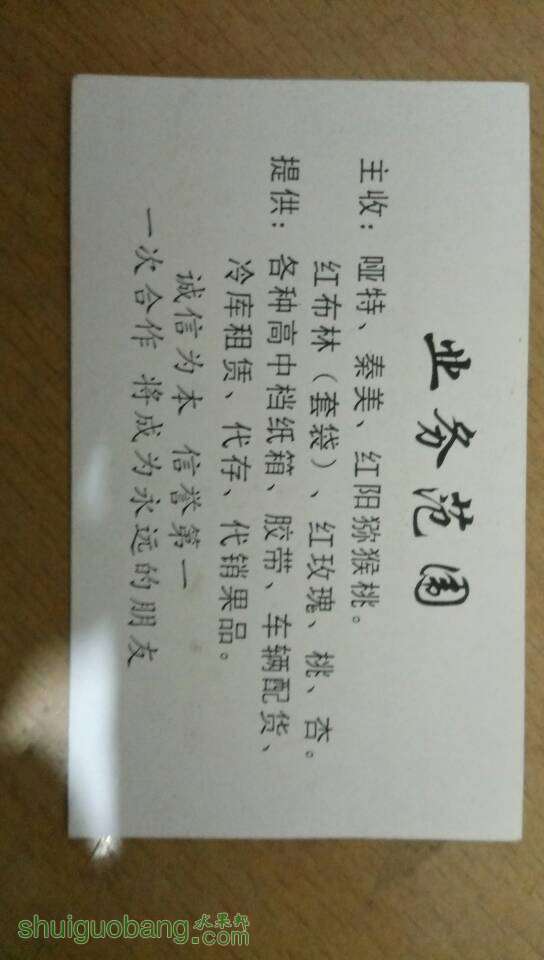 业务范围
主收：哑特、秦美、红阳猕猴桃。
红布林（套袋）、红玫瑰、桃、杏。
提供：各种高中档纸箱、胶带、车辆配货、
冷库租赁、代存、代销果品。
诚信为本 信誉第一
一次合作 将成为永远的朋友
水果邦
shuiguobang.com